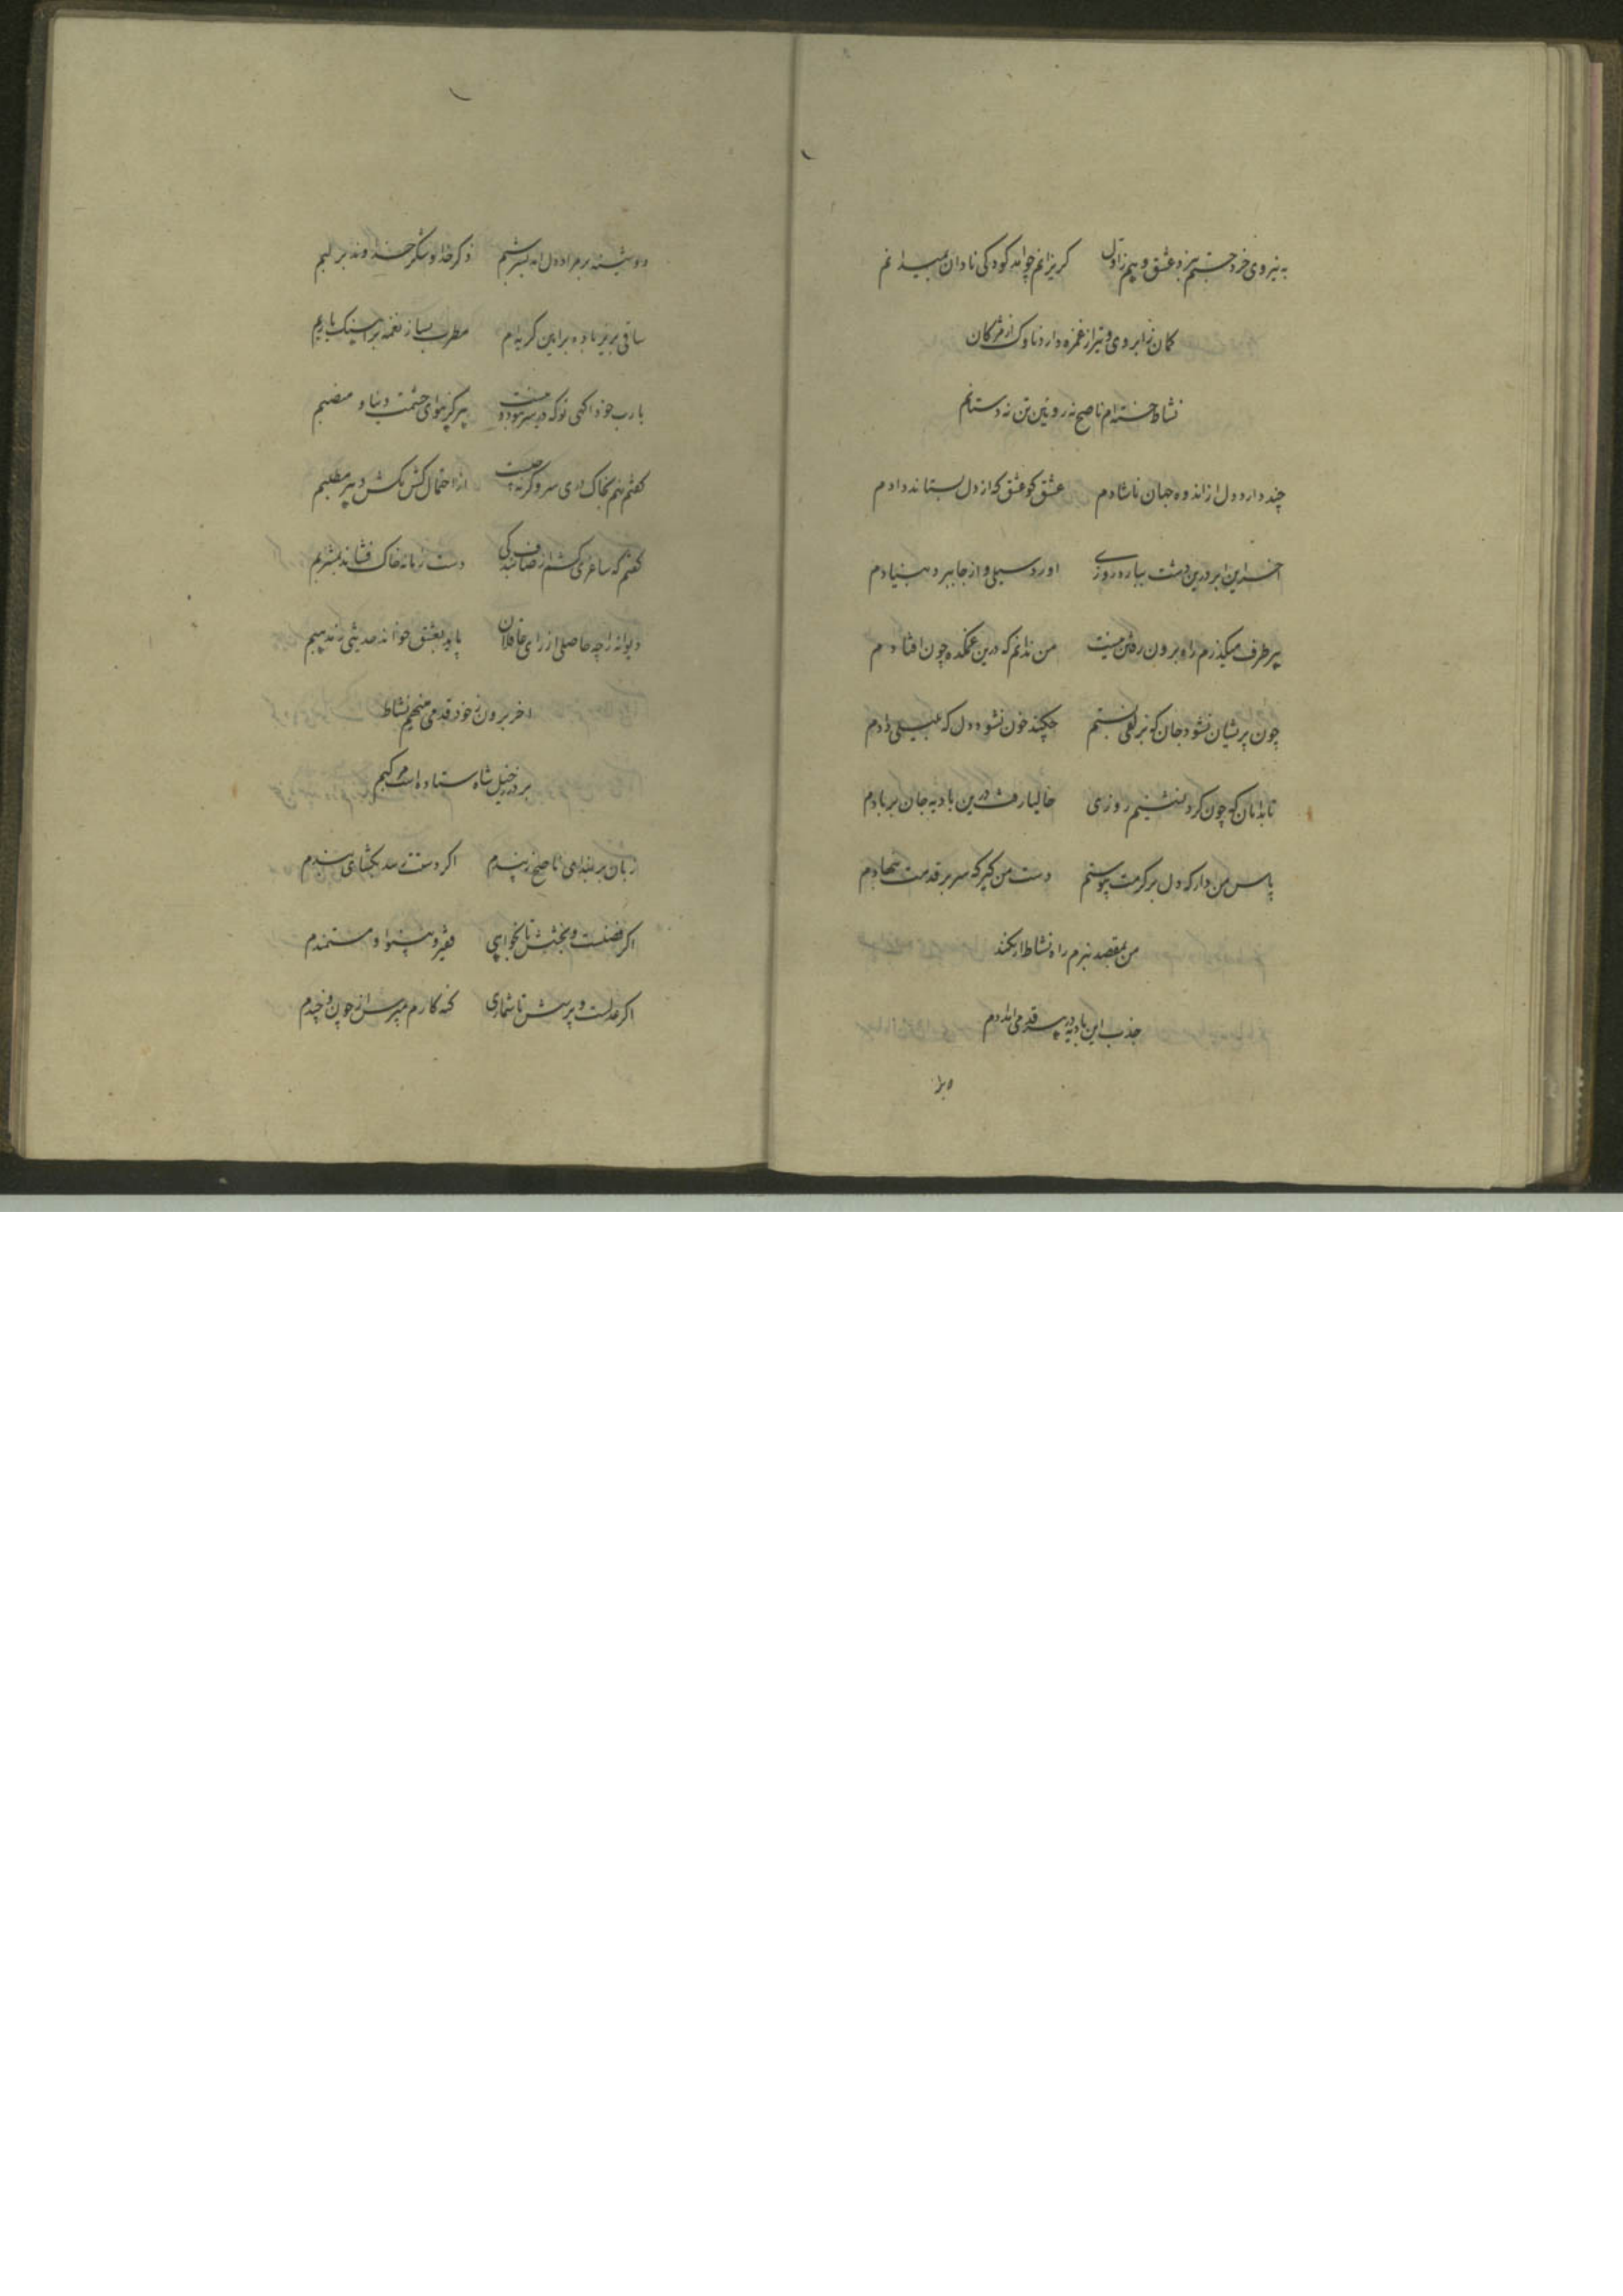 به نیروی خرد جستم نبرد عشق و بیم از دل گریزانم چو آمد کودکی نادان بمیدانم
کمان ز ابروی و تیر از غمزه دارد ناوک از مژگان
نشاط خسته‌ام ناصح نه رویین تن نه دستانم
چند دارد دل از اندوه جهان ناشادم عشق کو عشق که از دل بستاند دادم
آخر این ابر درین دشت ببارد روزی آورد سیلی و از جا ببرد بنیادم
بهر طرف میگذرم راه برون رفتن نیست من ندانم که درین غمکده چون افتادم
چون پریشان نشود جان که بزلفی بستم چکند خون نشود دل که بلعلی دادم
تا بدامان که چون گرد نشینم روزی حالیا رفت درین بادیه جان بر بادم
پاس من دار که دل بر کرمت پیوستم دست من گیر که سر بر قدمت بنهادم
من بمقصد نبرم راه نشاط ار نکند
جذب این بادیه در هر قدمی امدادم
دوشینه بر مراد دل آمد بسر شبم ذکر خدا و شکر خداوند بر لبم
ساقی بریز باده برای گریه‌ام مطرب بساز نغمه بر آهنگ یاربم
یارب خود آگهی تو که در سر نبود و نیست هرگز هوای حشمت دنیا و منصبم
گفتم نهم بخاک دری سر وگرنه
گفتم که ساغری کشم از صاف بیدلی دست زمانه خاک فشاند بمشربم
دیوانه را چه حاصلی از رای عاقلان
آخر برون ز خود قدمی می‌نهم نشاط
بر در ز خیل شاه ستاده است مرکبم
زبان بربند ای ناصح ز پندم اگر دستت رسد بگشای بندم
اگر فضلست و بخشش تا بخواهی فقیر و بینوا و مستمندم
اگر عدلست و پرسش تا شماری گنه کارم مپرس از چون و چندم